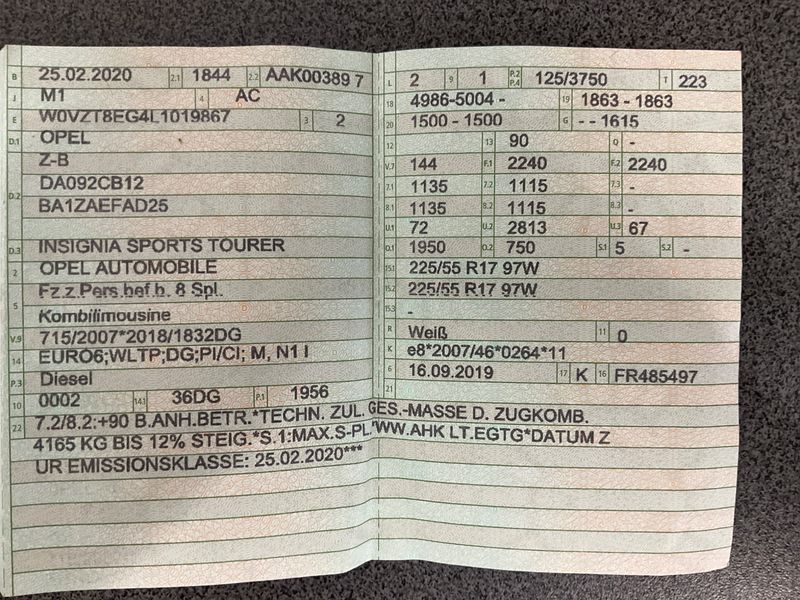 B 25.02.2020 2.1 1844 2.2 AAK00389 7
J M1 4 AC
E W0VZT8EG4L1019867 3 2
D.1 OPEL
Z-B
D.2 DA092CB12
BA1ZAEFAD25
D.3 INSIGNIA SPORTS TOURER
2 OPEL AUTOMOBILE
5 Fz.z.Pers.bef.b. 8 Spl.
Kombilimousine
V.9 715/2007*2018/1832DG
14 EURO6;WLTP;DG;PI/CI; M, N1 I
P.3 Diesel
10 0002 14.1 36DG P.1 1956
L 2 9 1 P.2 P.4 125/3750 T 223
18 4986-5004 - 19 1863 - 1863
20 1500 - 1500 G - - 1615
12 13 90 Q -
V.7 144 F.1 2240 F.2 2240
7.1 1135 7.2 1115 7.3 -
8.1 1135 8.2 1115 8.3 -
U.1 72 U.2 2813 U.3 67
O.1 1950 O.2 750 S.1 5 S.2 -
15.1 225/55 R17 97W
15.2 225/55 R17 97W
15.3 -
R Weiß 11 0
K e8*2007/46*0264*11
6 16.09.2019 17 K 16 FR485497
21
22 7.2/8.2:+90 B.ANH.BETR.*TECHN. ZUL. GES.-MASSE D. ZUGKOMB.
4165 KG BIS 12% STEIG.*S.1:MAX.S-PL.*WW.AHK LT.EGTG*DATUM Z
UR EMISSIONSKLASSE: 25.02.2020***